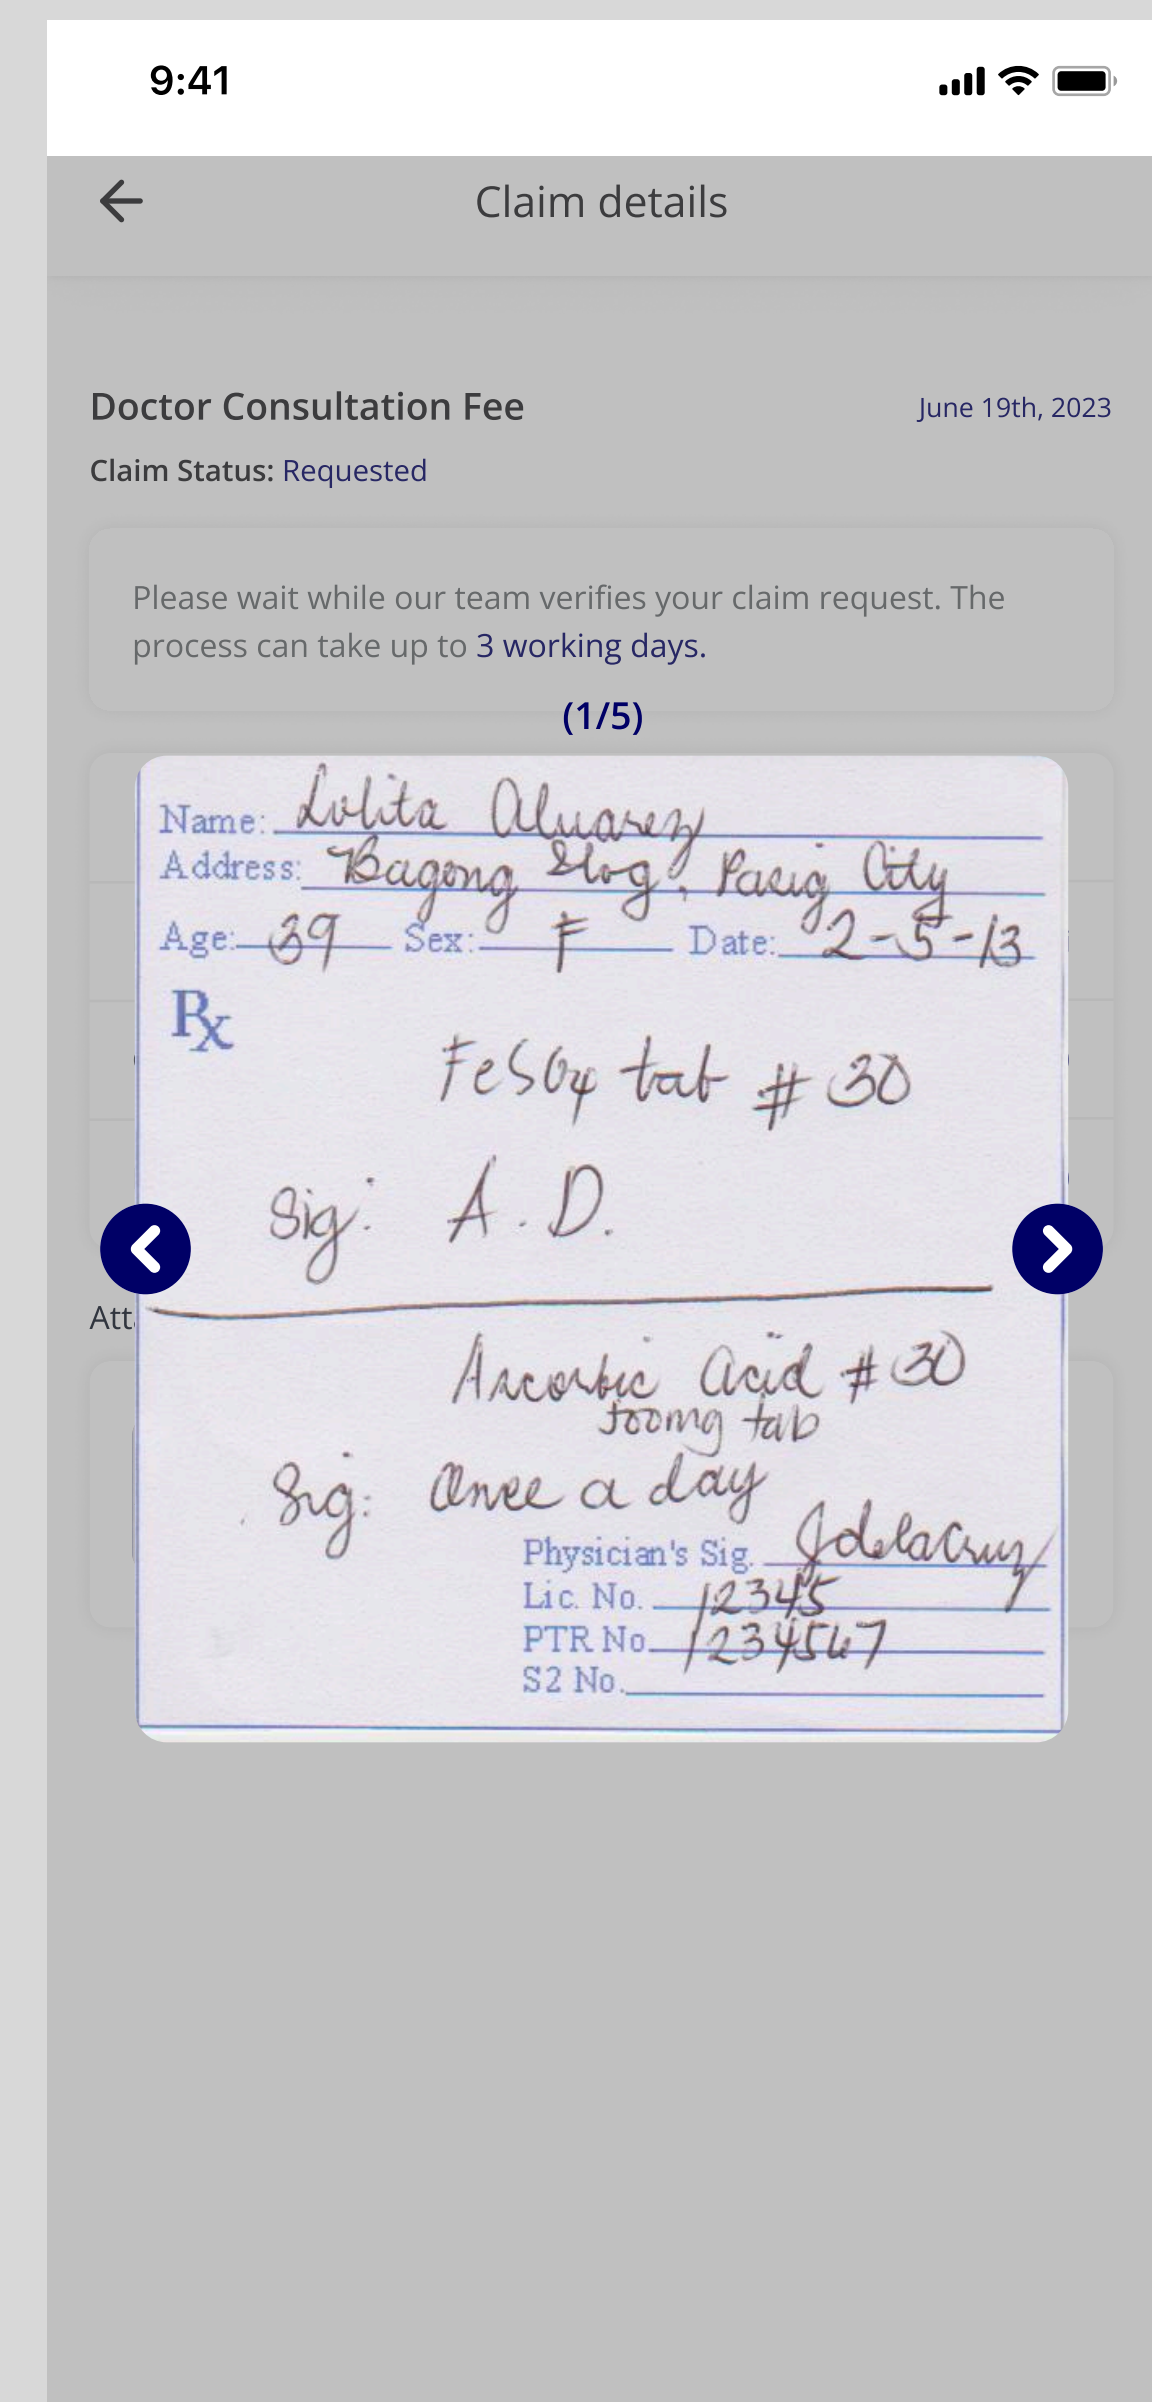 9:41
Claim details
Doctor Consultation Fee June 19th, 2023
Claim Status: Requested
Please wait while our team verifies your claim request. The
process can take up to 3 working days.
(1/5)
Name: Lolita Alvarez
Address: Bagong Ilog, Pasig City
Age: 39 Sex: F Date: 2-5-13
Rx
FeSO4 tab # 30
Sig: A.D.
Ascorbic Acid # 30
tab
Sig: Once a day
Physician's Sig. JdelaCruz
Lic. No. 12345
PTR No. 1234567
S2 No.